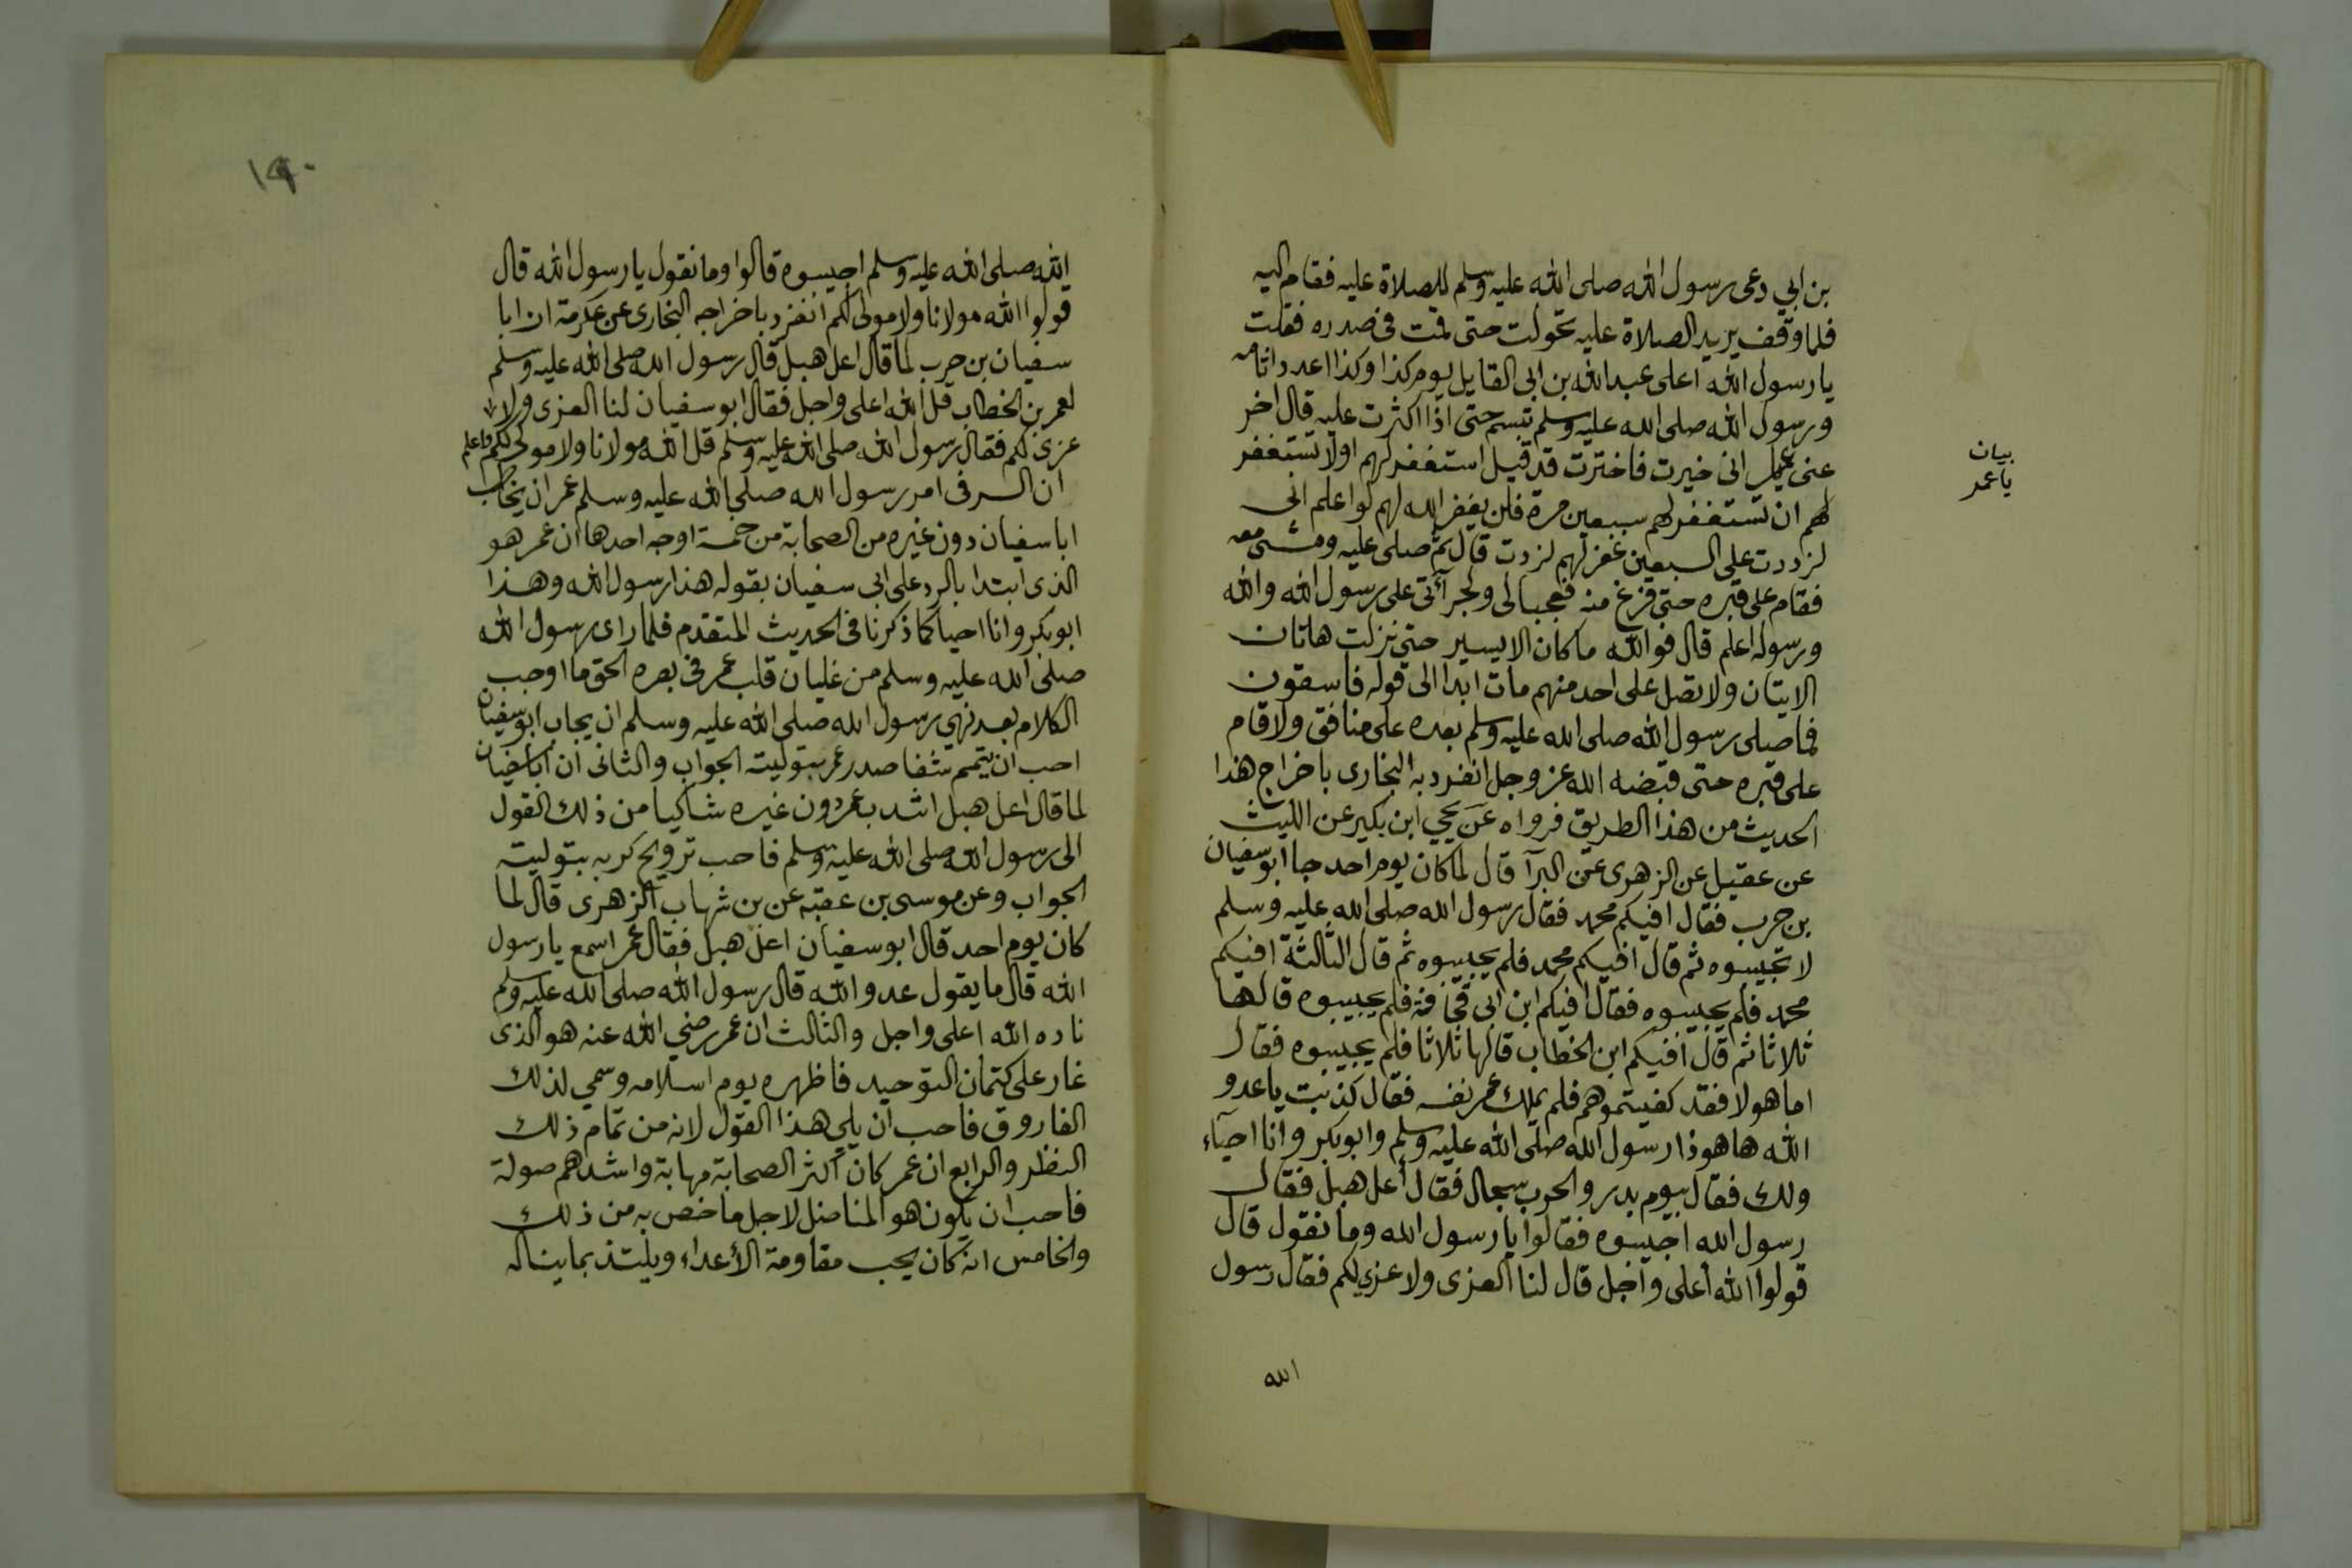 بن ابي دعى رسول الله صلى الله عليه وسلم للصلاة عليه فقام اليه
فلما وقف يريد الصلاة عليه تحولت حتى قمت في صدره فقلت
يا رسول الله اعلى عبد الله بن ابى القايل يوم كذا وكذا اعدد اثامه
ورسول الله صلى الله عليه وسلم تبسم حتى اذا اكثرت عليه قال اخر
عنى ياعمر انى خيرت فاخترت قد قيل استغفر لهم اولا تستغفر
لهم ان تستغفر لهم سبعين مرة فلن يغفر الله لهم لو اعلم انى
لو زدت على السبعين غفر لهم لزدت قال ثم صلى عليه ومشى معه
فقام على قبره حتى فرغ منه فعجبا لى ولجرآتى على رسول الله والله
ورسوله اعلم قال فوالله ما كان الا يسير حتى نزلت هاتان
الايتان ولا تصل على احد منهم مات ابدا الى قوله فاسقون
فما صلى رسول الله صلى الله عليه وسلم بعده على منافق ولا قام
على قبره حتى قبضه الله عز وجل انفرد به البخارى باخراج هذا
الحديث من هذا الطريق فرواه عن يحيي ابن بكير عن الليث
عن عقيل عن الزهرى عن البرآ قال لما كان يوم احد جا ابو سفيان
بن حرب فقال افيكم محمد فقال رسول الله صلى الله عليه وسلم
لا تجيبوه ثم قال افيكم محمد فلم يجيبوه ثم قال الثالثة افيكم
محمد فلم يجيبوه فقال افيكم ابن ابى قحافة فلم يجيبوه قالها
ثلاثا ثم قال افيكم ابن الخطاب قالها ثلاثا فلم يجيبوه فقال
اما هولا فقد كفيتموهم فلم يملك عمر نفسه فقال كذبت يا عدو
الله ها هو ذا رسول الله صلى الله عليه وسلم وابو بكر وانا احيآء
ولك فقال بيوم بدر والحرب سجال فقال أعل هبل فقال
رسول الله اجيبوه فقالوا يا رسول الله وما نقول قال
قولوا الله أعلى وأجل قال لنا العزى ولا عزي لكم فقال رسول
الله
بيان
ياعمر
١٩٠
الله صلى الله عليه وسلم اجيبوه قالوا وما نقول يا رسول الله قال
قولوا الله مولانا ولا مولى لكم انفرد باخراجه البخارى عن عكرمة ان ابا
سفيان بن حرب لما قال اعل هبل قال رسول الله صلى الله عليه وسلم
لعمر بن الخطاب قل الله اعلى واجل فقال ابو سفيان لنا العزى ولا
عزى لكم فقال رسول الله صلى الله عليه وسلم قل الله مولانا ولا مولى لكم واعلم
ان السر فى امر رسول الله صلى الله عليه وسلم عمر ان يخاطب
ابا سفيان دون غيره من الصحابة من خمسة اوجه احدها ان عمر هو
الذى ابتدا بالرد على ابى سفيان بقوله هذا رسول الله وهذا
ابو بكر وانا احيا كما ذكرنا فى الحديث المتقدم فلما راى رسول الله
صلى الله عليه وسلم من غليان قلب عمر فى بصره الحق ما اوجب
الكلام بعد نهى رسول الله صلى الله عليه وسلم ان يجاب ابو سفيان
احب ان يتمم شفا صدر عمر بتوليته الجواب والثانى ان ابا سفيان
لما قال اعل هبل اشد بعمر دون غيره شاكيا من ذلك القول
الى رسول الله صلى الله عليه وسلم فاحب ترويح كربه بتوليته
الجواب وعن موسى بن عقبة عن بن شهاب الزهرى قال لما
كان يوم احد قال ابو سفيان اعل هبل فقال عمر اسمع يا رسول
الله قال ما يقول عدو الله قال رسول الله صلى الله عليه وسلم
ناده الله اعلى واجل والثالث ان عمر رضي الله عنه هو الذى
غار على كتمان التوحيد فاظهره يوم اسلامه وسمي لذلك
الفاروق فاحب ان يلي هذا القول لانه من تمام ذلك
النظر والرابع ان عمر كان اكثر الصحابة مهابة واشدهم صولة
فاحب ان يكون هو المناضل لاجل ما خص به من ذلك
والخامس انه كان يحب مقاومة الأعداء ويلتذ بما يناله